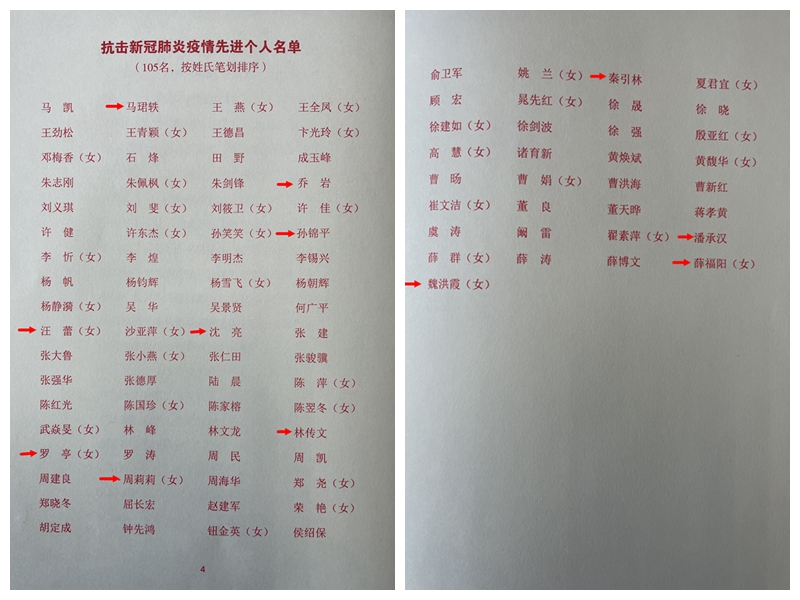 抗击新冠肺炎疫情先进个人名单
（105名，按姓氏笔划排序）
马 凯 马珺轶 王 燕（女） 王全凤（女）
王劲松 王青颖（女） 王德昌 卞光玲（女）
邓梅香（女） 石 烽 田 野 成玉峰
朱志刚 朱佩枫（女） 朱剑锋 乔 岩
刘义琪 刘 斐（女） 刘筱卫（女） 许 佳（女）
许 健 许东杰（女） 孙笑笑（女） 孙锦平
李 忻（女） 李 煌 李明杰 李锡兴
杨 帆 杨钧辉 杨雪飞（女） 杨朝辉
杨静漪（女） 吴 华 吴景贤 何广平
汪 蕾（女） 沙亚萍（女） 沈 亮 张 建
张大鲁 张小燕（女） 张仁田 张骏骥
张强华 张德厚 陆 晨 陈 萍（女）
陈红光 陈国珍（女） 陈家榕 陈翌冬（女）
武焱旻（女） 林 峰 林文龙 林传文
罗 亭（女） 罗 涛 周 民 周 凯
周建良 周莉莉（女） 周海华 郑 尧（女）
郑晓冬 屈长宏 赵建军 荣 艳（女）
胡定成 钟先鸿 钮金英（女） 侯绍保
4
俞卫军 姚 兰（女） 秦引林 夏君宜（女）
顾 宏 晁先红（女） 徐 晟 徐 晓
徐建如（女） 徐剑波 徐 强 殷亚红（女）
高 慧（女） 诸育新 黄焕斌 黄馥华（女）
曹 旸 曹 娟（女） 曹洪海 曹新红
崔文洁（女） 董 良 董天晔 蒋孝黄
虞 涛 阚 雷 翟素萍（女） 潘承汉
薛 群（女） 薛 涛 薛博文 薛福阳（女）
魏洪霞（女）